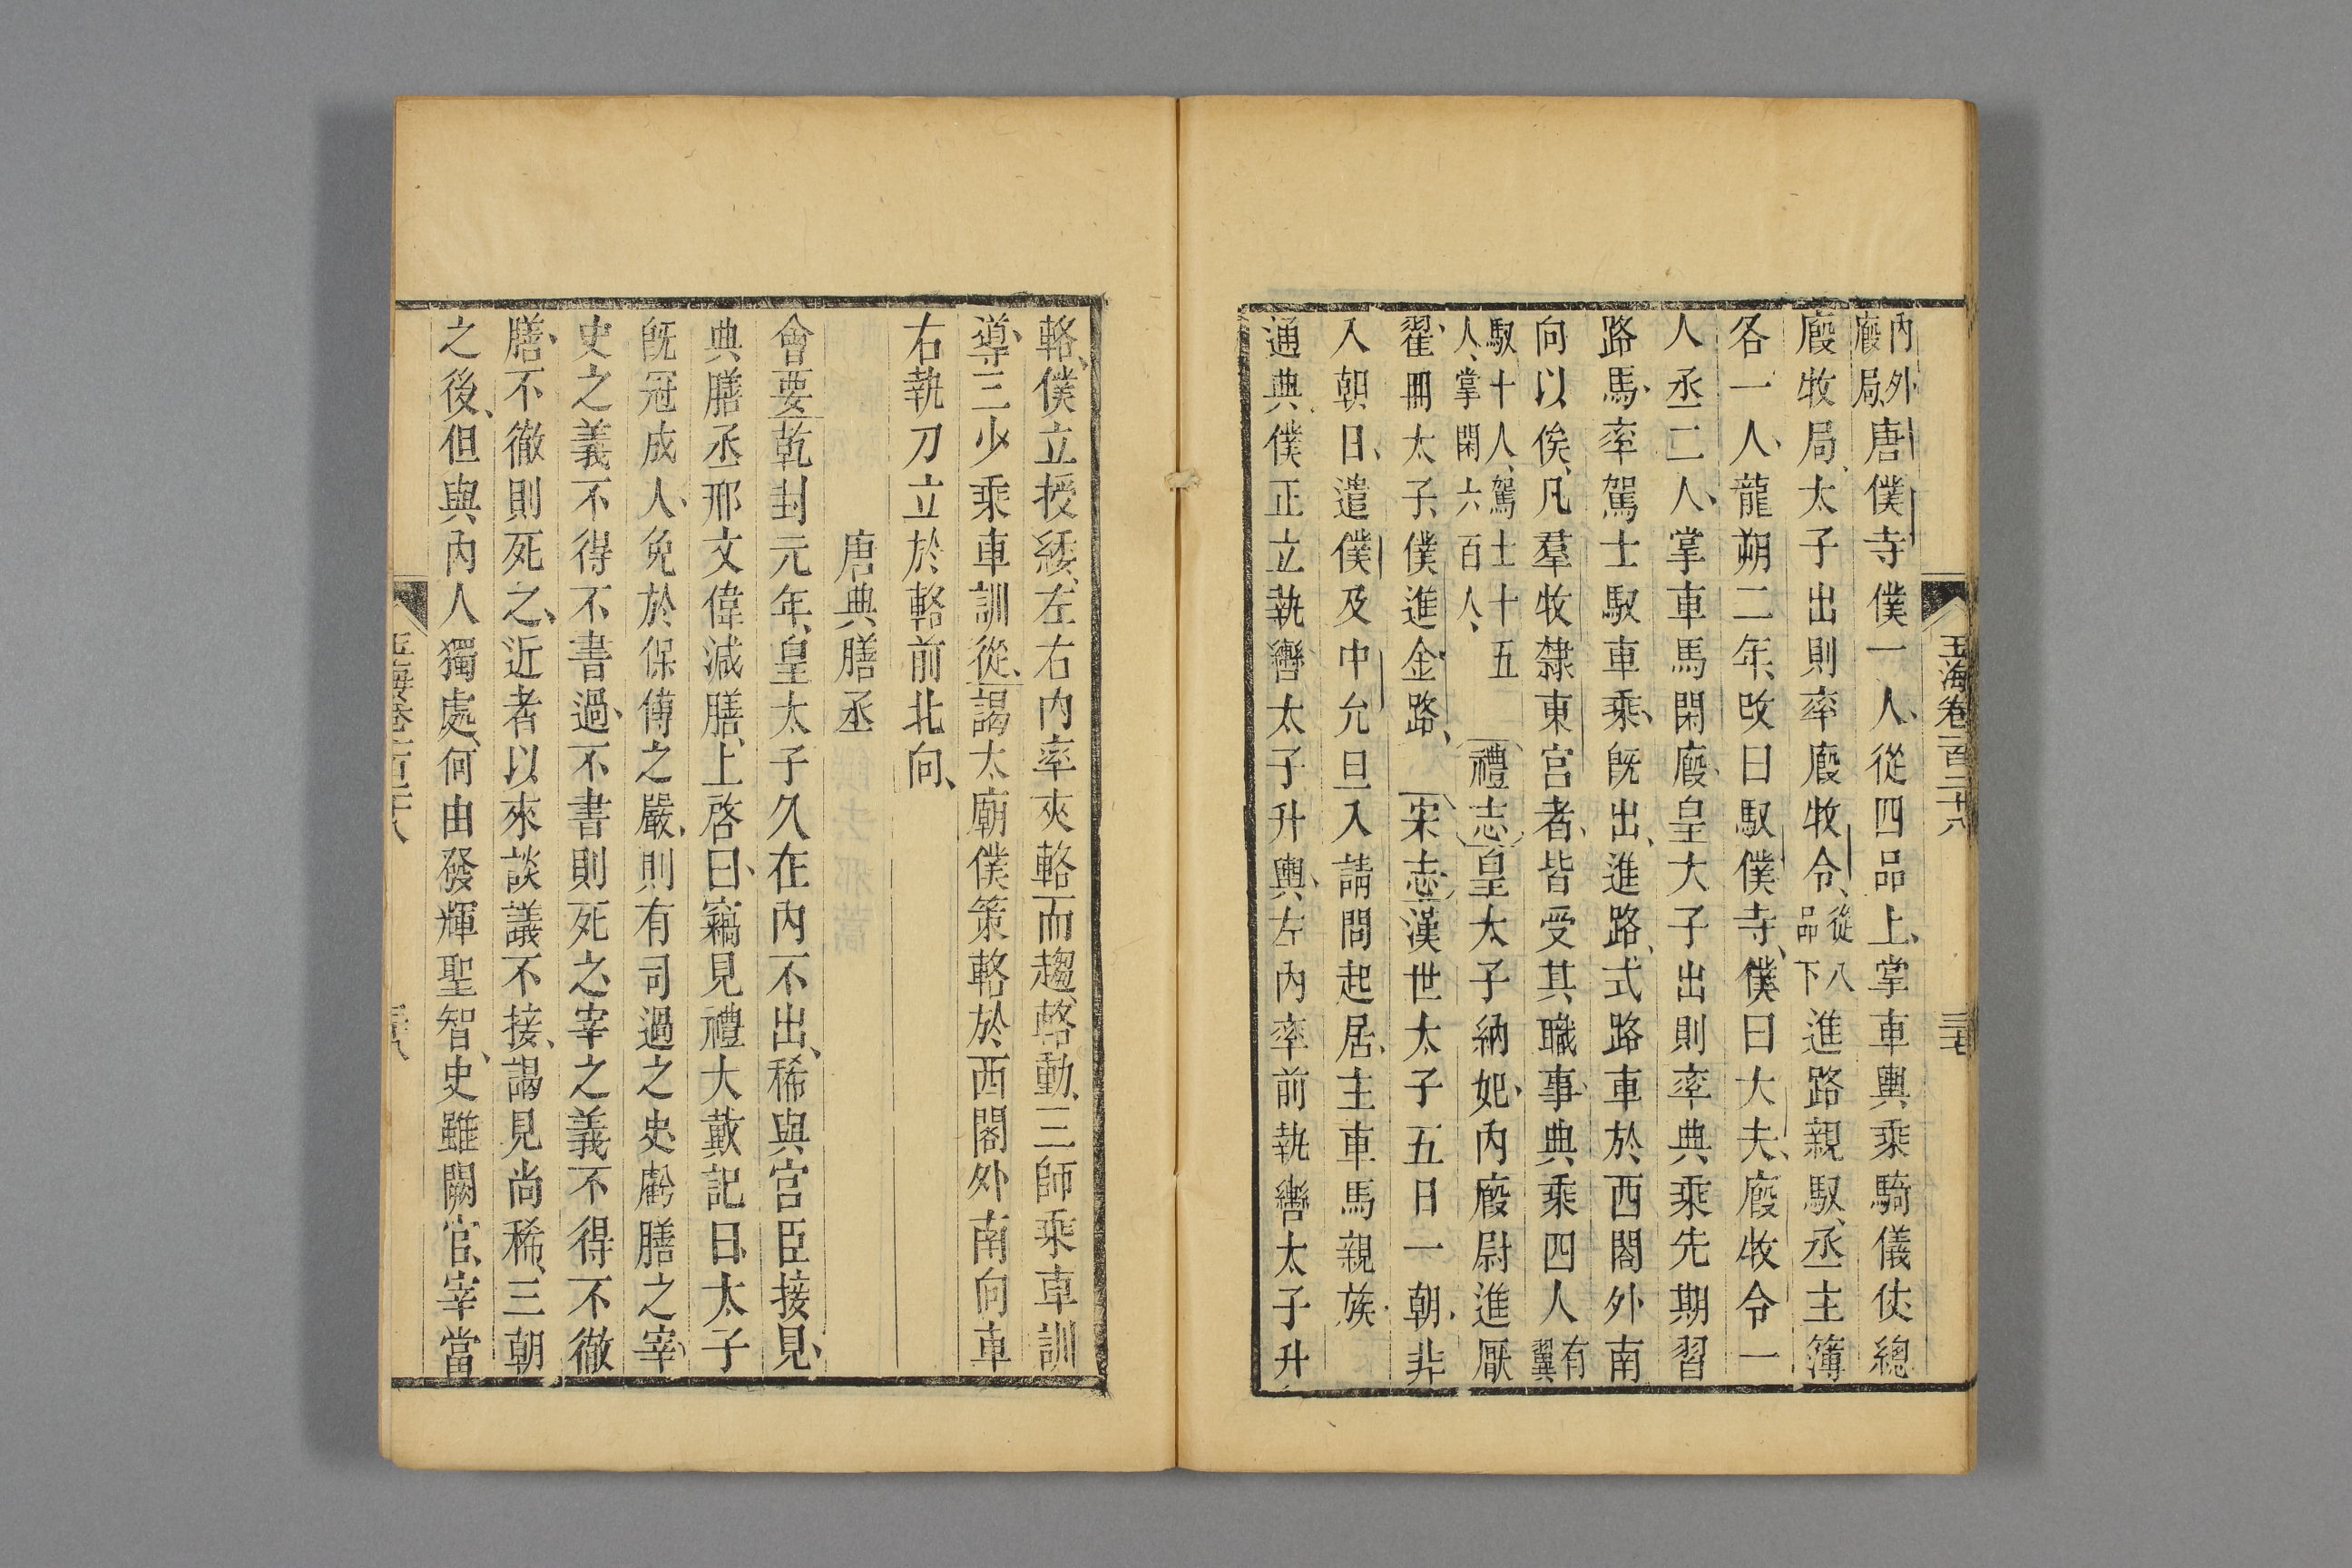 玉海卷一百二十八
三七
內外廏局唐僕寺僕一人從四品上掌車輿乘騎儀仗總
廏牧局太子出則率廏牧令從八品下進路親馭丞主簿
各一人龍朔二年改曰馭僕寺僕曰大夫廏牧令一
人丞二人掌車馬閑廏皇太子出則率典乘先期習
路馬率駕士馭車乘旣出進路式路車於西閤外南
向以俟凡羣牧隸東宮者皆受其職事典乘四人有翼
馭十人駕士十五人掌閑六百人禮志皇太子納妃內廏尉進厭
翟冊太子僕進金路宋志漢世太子五日一朝非
入朝日遣僕及中允旦入請問起居主車馬親族
通典僕正立執轡太子升輿左內率前執轡太子升
輅僕立授綏左右內率夾輅而趨輅動三師乘車訓
導三少乘車訓從謁太廟僕策輅於西閤外南向車
右執刀立於輅前北向
唐典膳丞
會要乾封元年皇太子久在內不出稀與宮臣接見
典膳丞邢文偉減膳上啓曰竊見禮大戴記曰太子
旣冠成人免於保傅之嚴則有司過之史虧膳之宰
史之義不得不書過不書則死之宰之義不得不徹
膳不徹則死之近者以來談議不接謁見尚稀三朝
之後但與內人獨處何由發輝聖智史雖闕官宰當